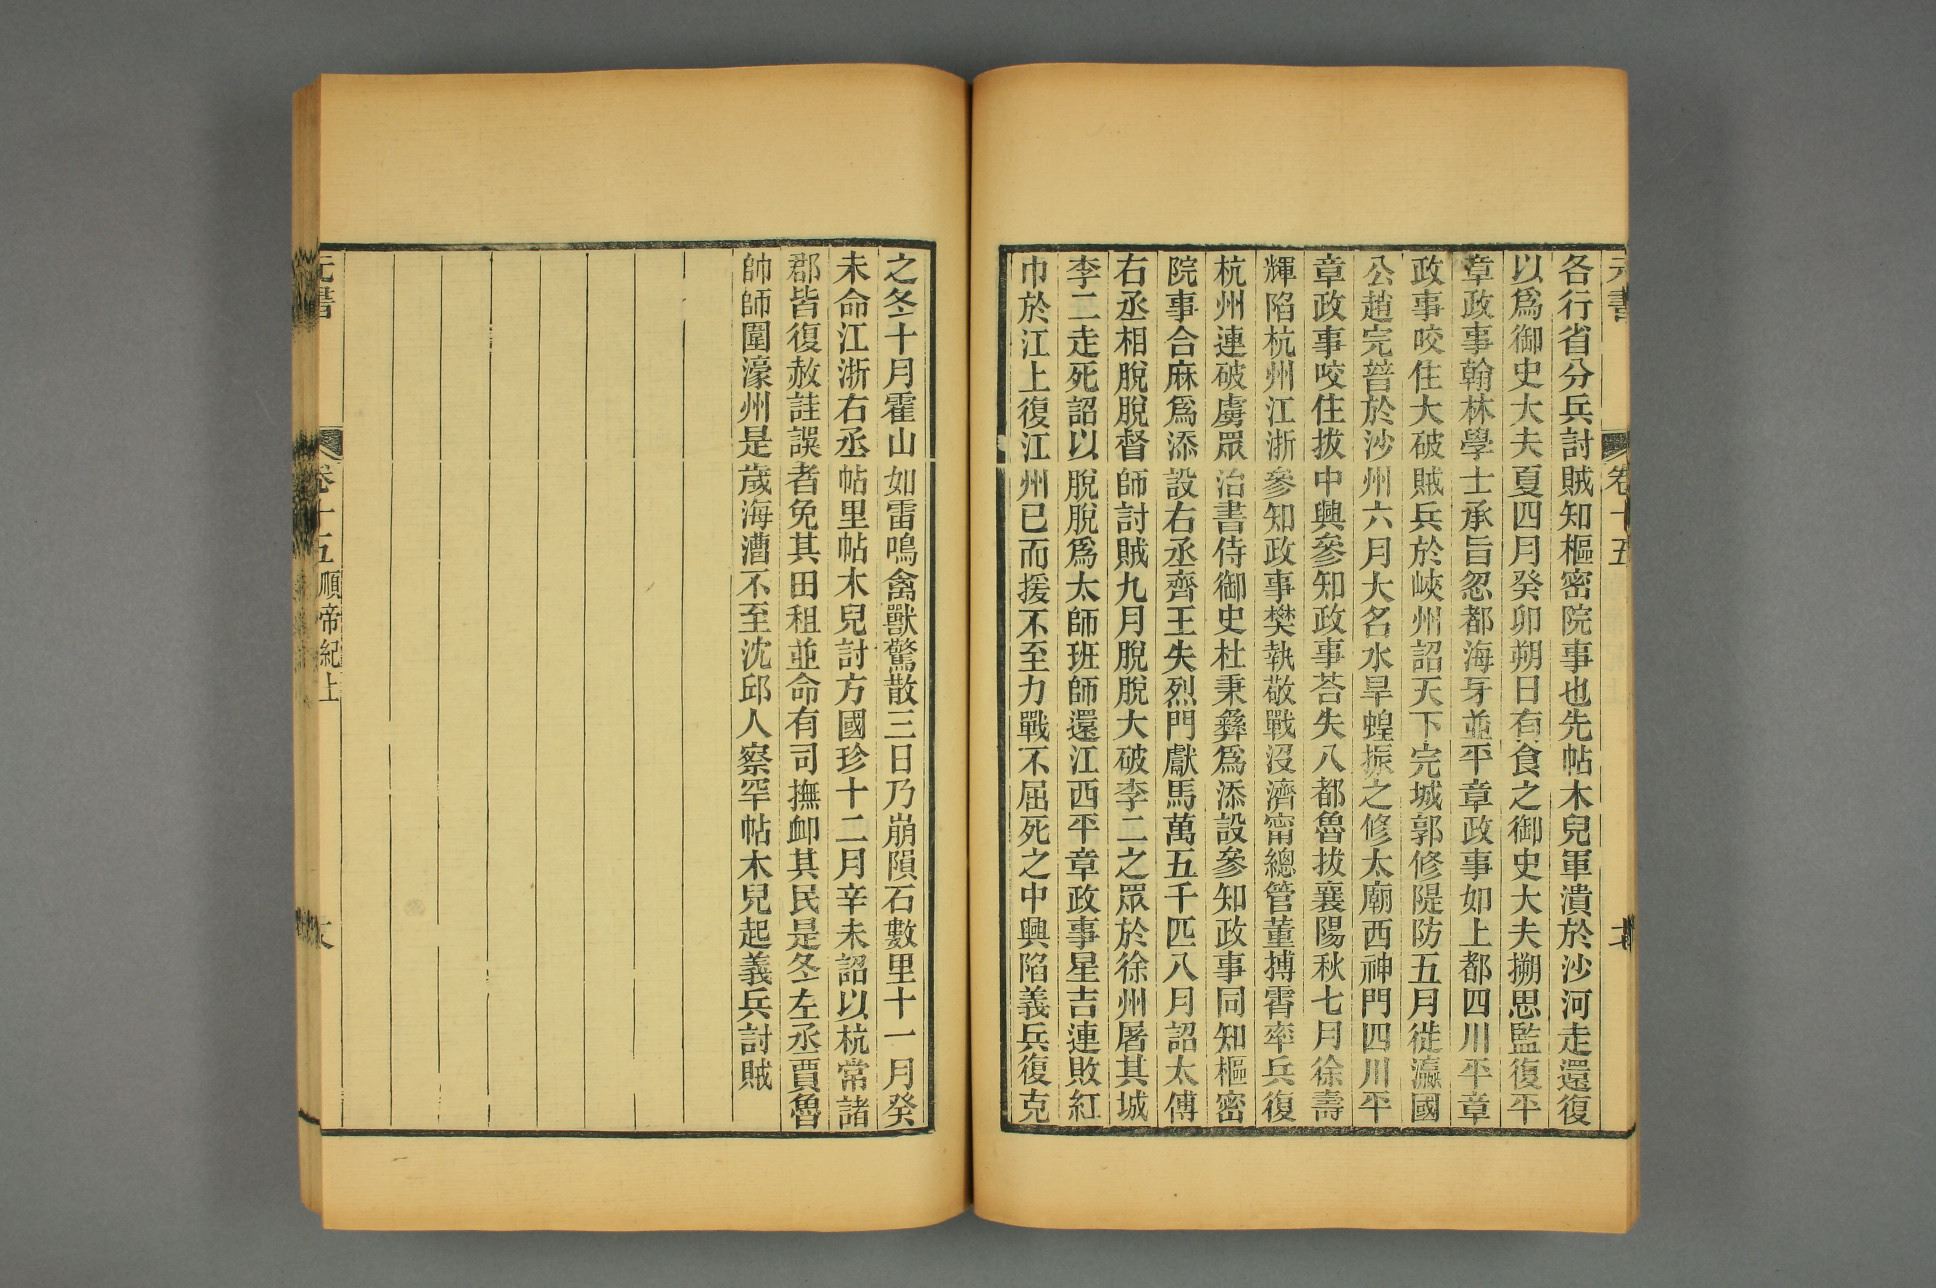 元書 卷十五
各行省分兵討賊知樞密院事也先帖木兒軍潰於沙河走還復
以爲御史大夫夏四月癸卯朔日有食之御史大夫搠思監復平
章政事翰林學士承旨忽都海牙並平章政事如上都四川平章
政事咬住大破賊兵於峽州詔天下完城郭修隄防五月徙瀛國
公趙完普於沙州六月大名水旱蝗振之修太廟西神門四川平
章政事咬住拔中興參知政事荅失八都魯拔襄陽秋七月徐壽
輝陷杭州江浙參知政事樊執敬戰沒濟甯總管董摶霄率兵復
杭州連破虜眾治書侍御史杜秉彝爲添設參知政事同知樞密
院事合麻爲添設右丞齊王失烈門獻馬萬五千匹八月詔太傅
右丞相脫脫督師討賊九月脫脫大破李二之眾於徐州屠其城
李二走死詔以脫脫爲太師班師還江西平章政事星吉連敗紅
巾於江上復江州已而援不至力戰不屈死之中興陷義兵復克
之冬十月霍山如雷鳴禽獸驚散三日乃崩隕石數里十一月癸
未命江浙右丞帖里帖木兒討方國珍十二月辛未詔以杭常諸
郡皆復赦詿誤者免其田租並命有司撫卹其民是冬左丞賈魯
帥師圍濠州是歲海漕不至沈邱人察罕帖木兒起義兵討賊
元書 卷十五 順帝紀上